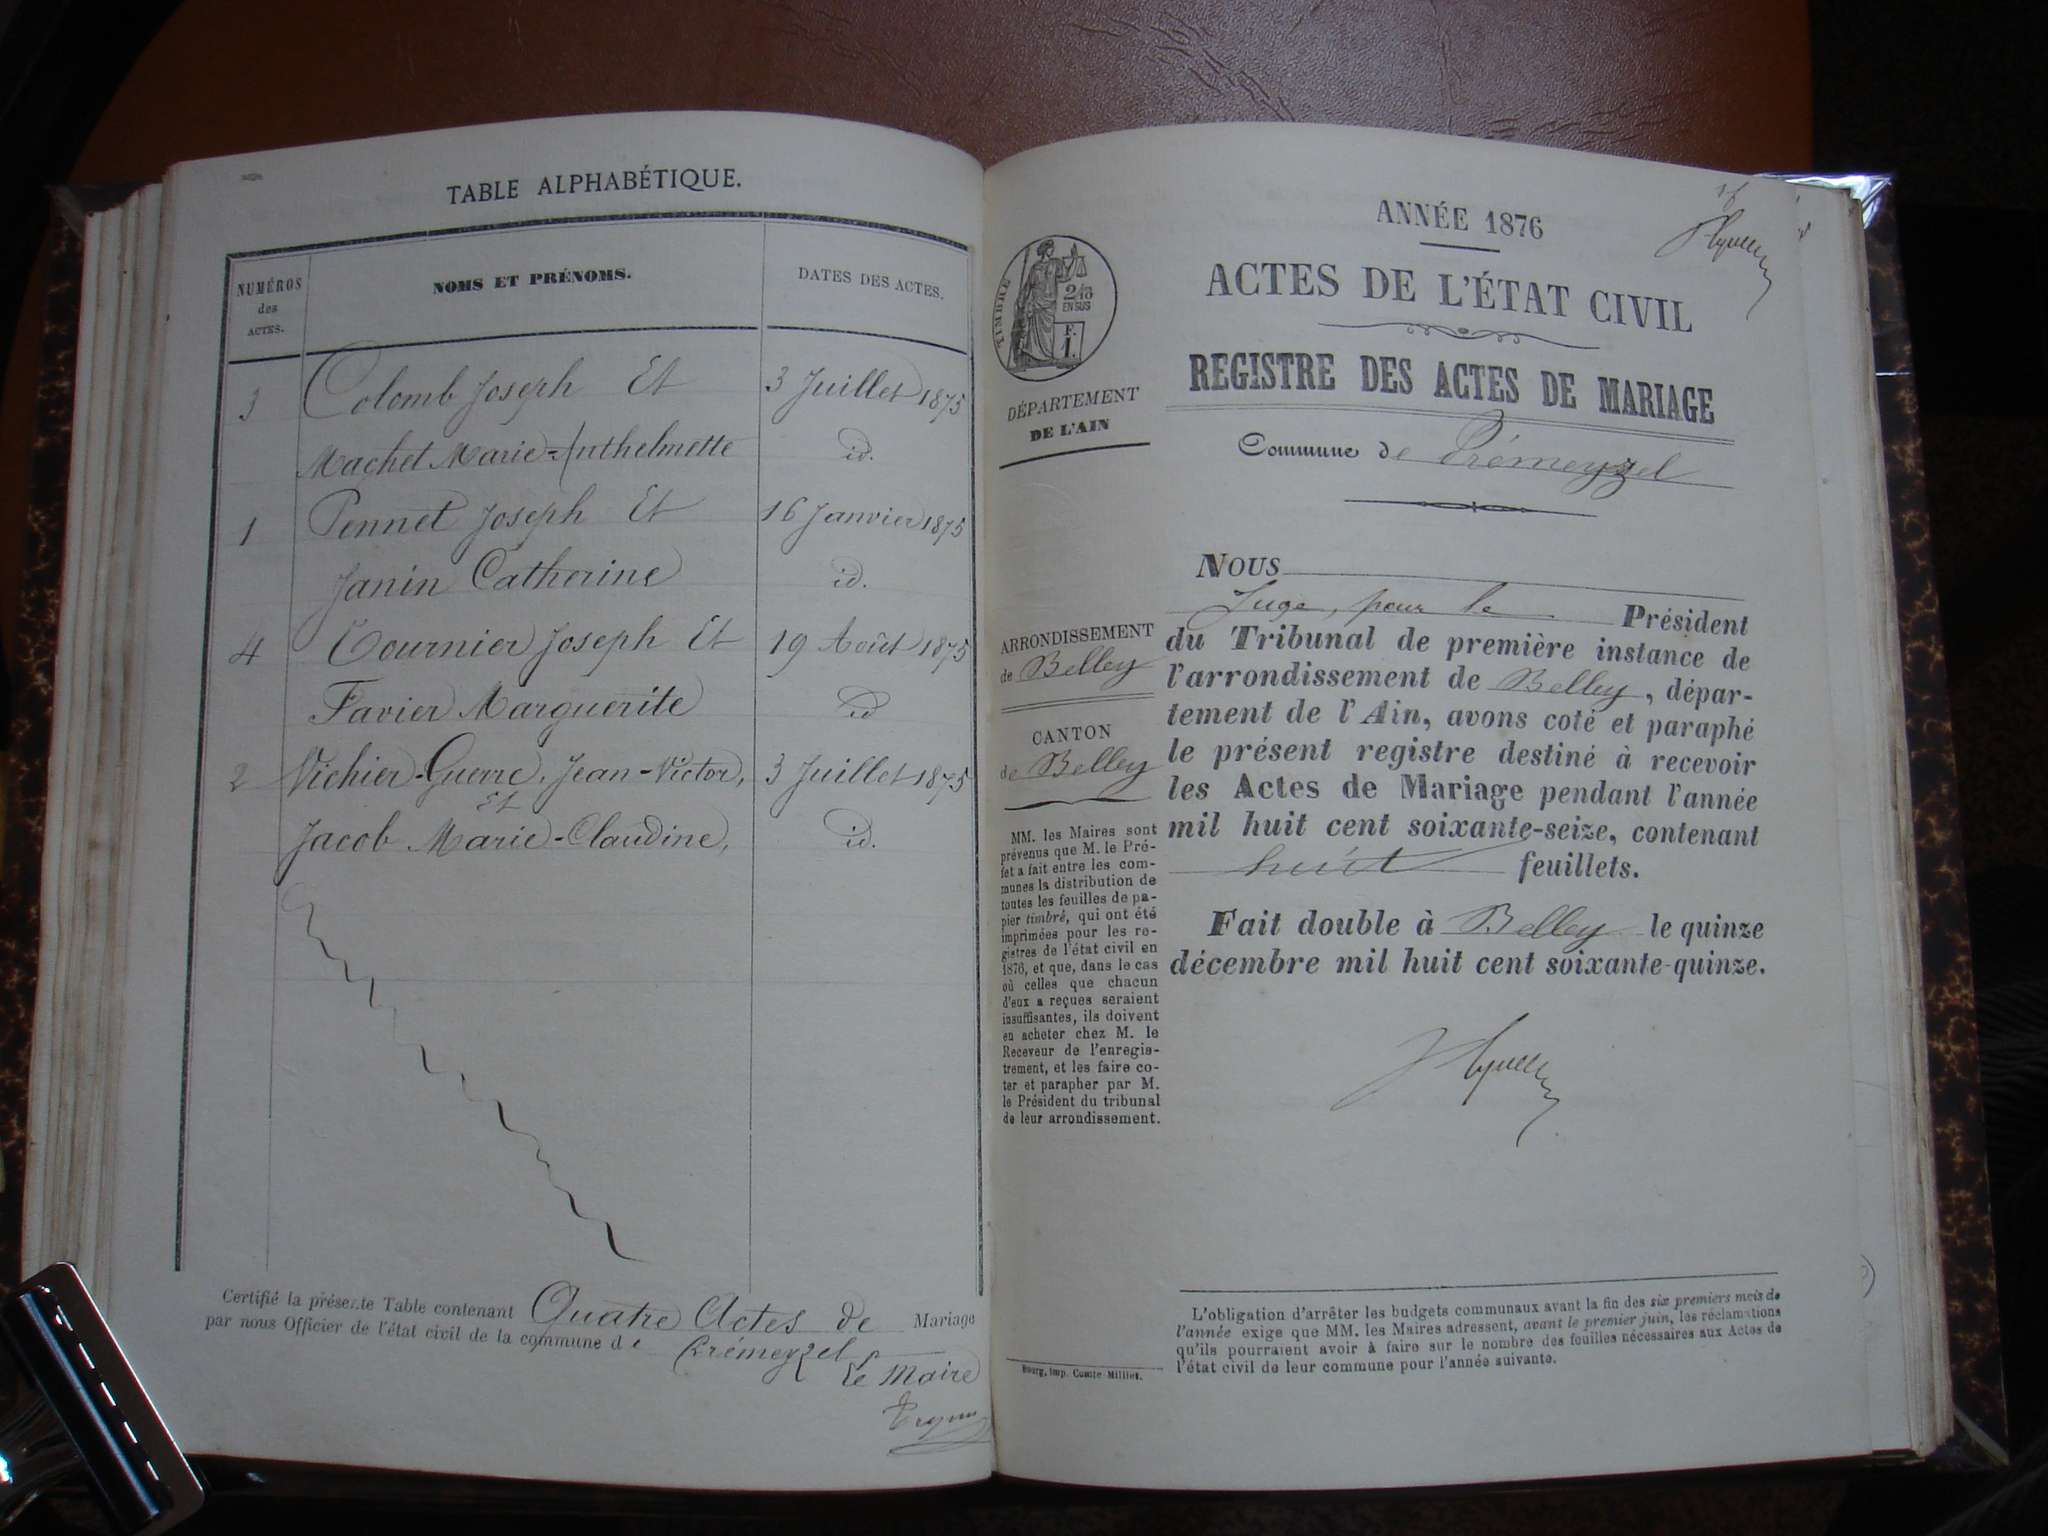 TABLE ALPHABÉTIQUE.
NUMÉROS des ACTES.
NOMS ET PRÉNOMS.
DATES DES ACTES.
3 Colomb Joseph Et 3 Juillet 1875
Machet Marie-Anthelmette id.
1 Pennet Joseph Et 16 Janvier 1875
Janin Catherine id.
4 Tournier Joseph Et 19 Août 1875
Favier Marguerite id
2 Vichier-Guerre, Jean-Victor, 3 Juillet 1875
Et
Jacob Marie-Claudine, id.
Certifié la présente Table contenant Quatre Actes de Mariage
par nous Officier de l'état civil de la commune de Prémeyzel
Le Maire
ANNÉE 1876
ACTES DE L'ÉTAT CIVIL
REGISTRE DES ACTES DE MARIAGE
Commune de Prémeyzel
TIMBRE
2/10
EN SUS
F.
1.
DÉPARTEMENT
DE L'AIN
ARRONDISSEMENT
de Belley
CANTON
de Belley
MM. les Maires sont
prévenus que M. le Pré-
fet a fait entre les com-
munes la distribution de
toutes les feuilles de pa-
pier timbré, qui ont été
imprimées pour les re-
gistres de l'état civil en
1876, et que, dans le cas
où celles que chacun
d'eux a reçues seraient
insuffisantes, ils doivent
en acheter chez M. le
Receveur de l'enregis-
trement, et les faire co-
ter et parapher par M.
le Président du tribunal
de leur arrondissement.
NOUS
Juge, pour le Président
du Tribunal de première instance de
l'arrondissement de Belley, dépar-
tement de l'Ain, avons coté et paraphé
le présent registre destiné à recevoir
les Actes de Mariage pendant l'année
mil huit cent soixante-seize, contenant
huit feuillets.
Fait double à Belley le quinze
décembre mil huit cent soixante-quinze.
L'obligation d'arrêter les budgets communaux avant la fin des six premiers mois de
l'année exige que MM. les Maires adressent, avant le premier juin, les réclamations
qu'ils pourraient avoir à faire sur le nombre des feuilles nécessaires aux Actes de
l'état civil de leur commune pour l'année suivante.
Bourg, imp. Comte Milliet.